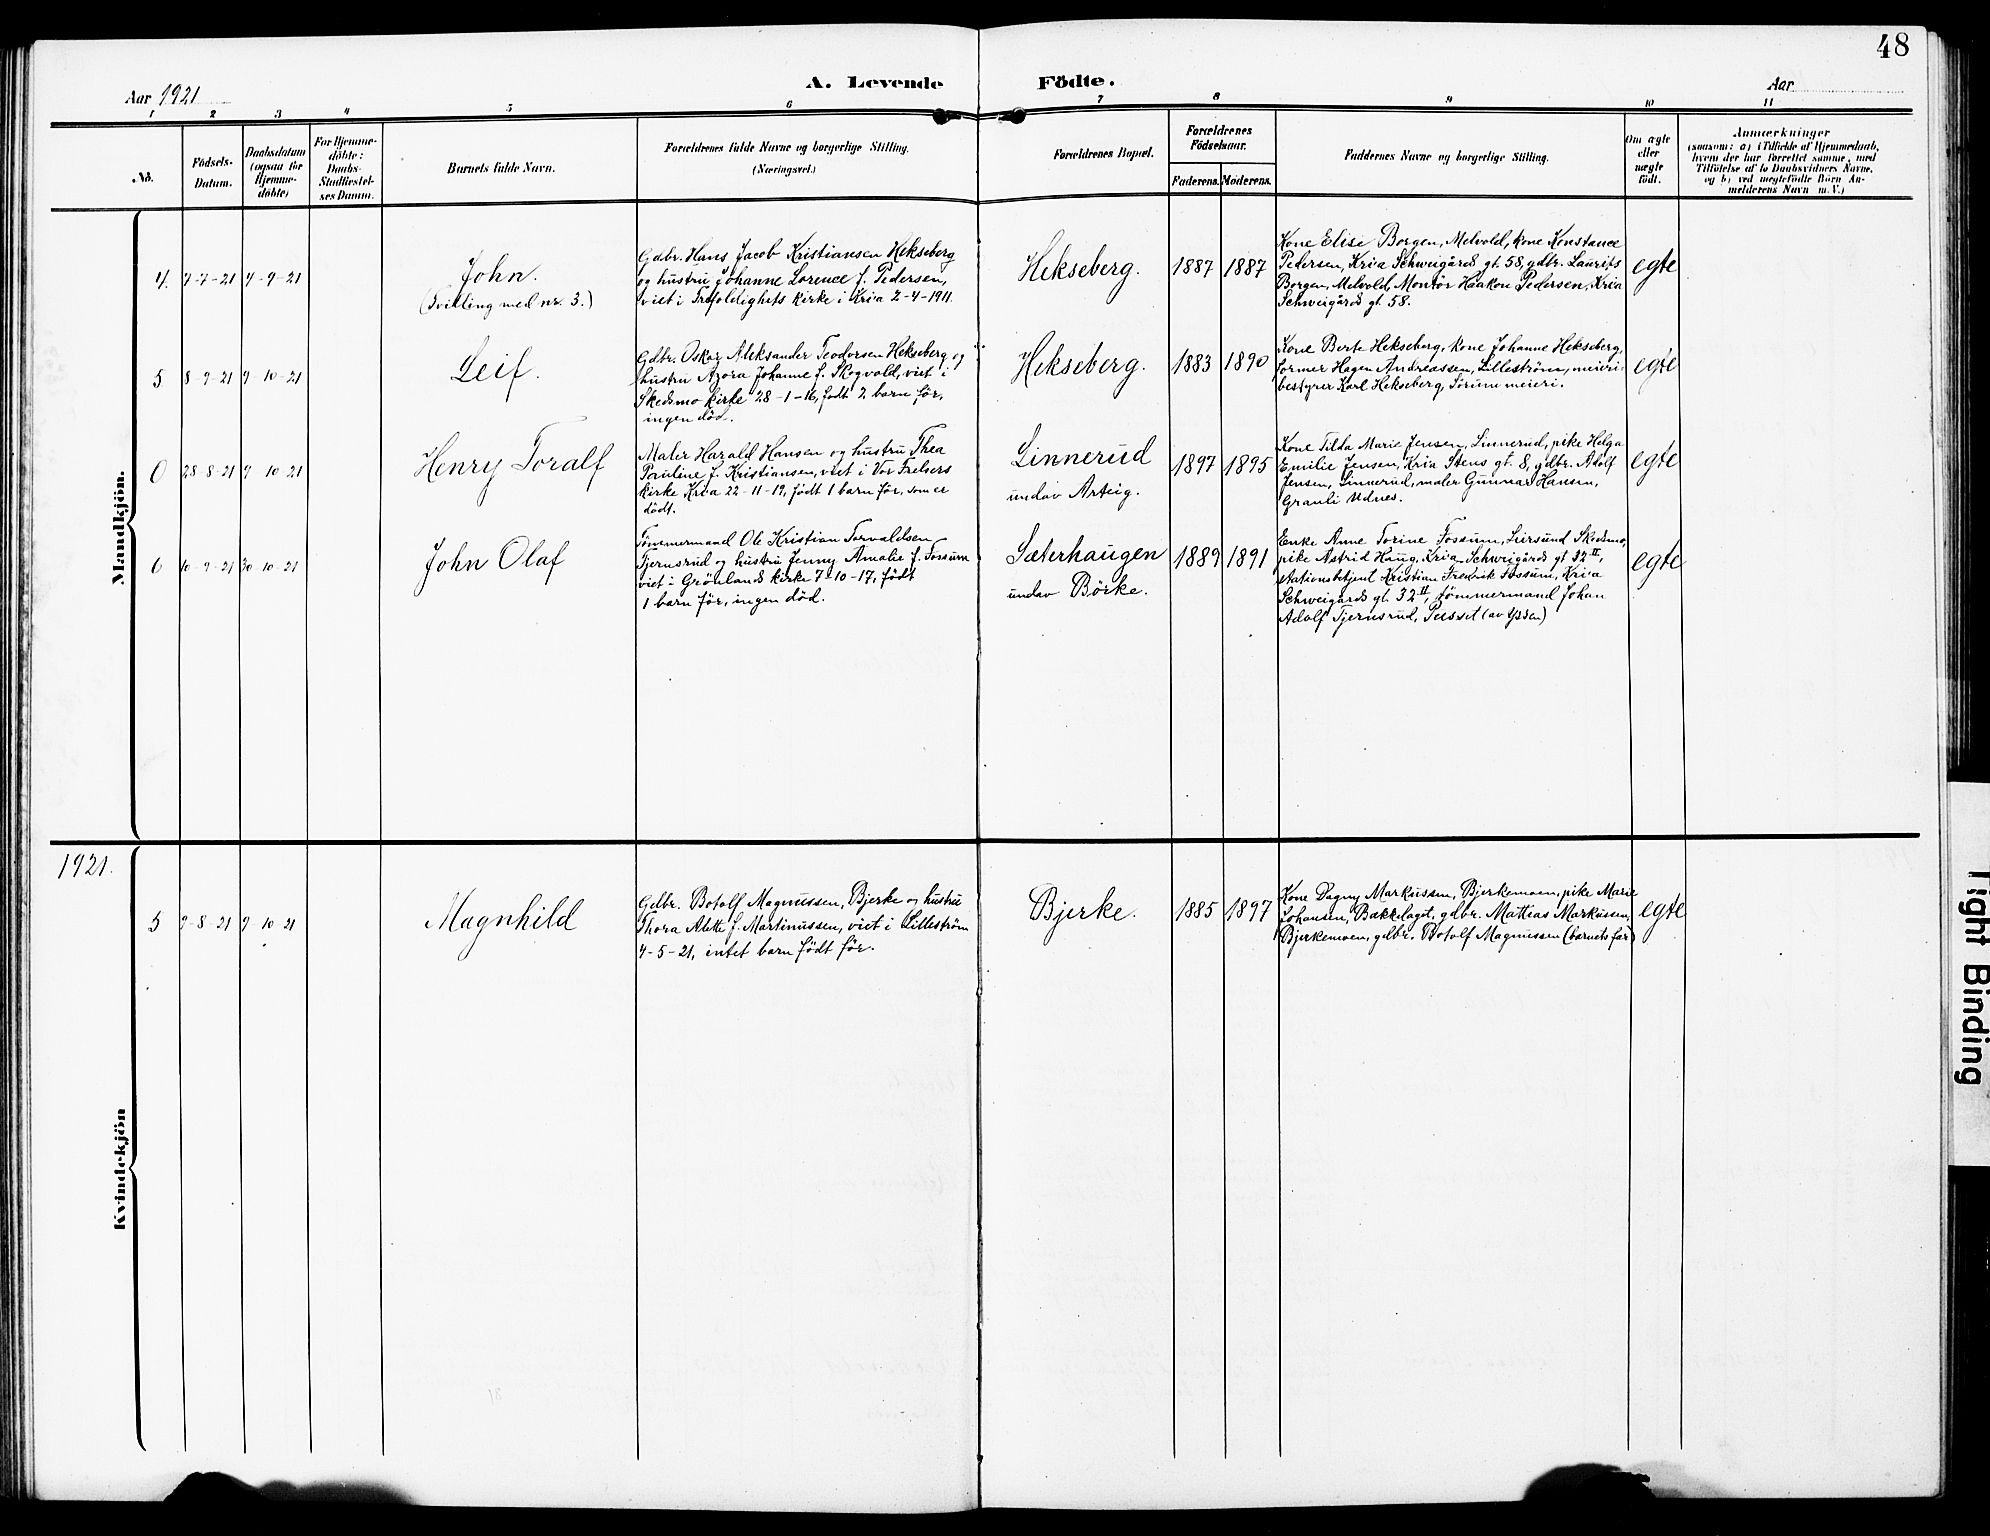 48
A. Levende Födte.
Aar 1921
Aar
1 2 3 4 5 6 7 8 9 10 11
No.
Födsels-
Datum.
Daabsdatum
(ogsaa for
Hjemme-
döbte)
For Hjemme-
döbte:
Daabs-
Stadfæstel-
ses Datum.
Barnets fulde Navn.
Forældrenes fulde Navne og borgerlige Stilling.
(Næringsvei.)
Forældrenes Bopæl.
Forældrenes
Födselsaar.
Faderens. Moderens.
Faddernes Navne og borgerlige Stilling.
Om ægte
eller
uægte
födt.
Anmærkninger
(saasom: a) i Tilfælde af Hjemmedaab,
hvem der har forrettet samme, med
Tilföielse af to Daabsvidners Navne,
og b) ved uægtefödte Börn An-
melderens Navn m. V.)
Mandkjön.
4. 7-7-21 4-9-21
John.
(Tvilling med nr. 3.)
Gdbr. Hans Jacob Kristiansen Hekseberg
og hustru Johanne Lorence f. Pedersen,
viet i Trefoldighets kirke i Kria 2-4-1911.
Hekseberg.
1887 1887
Kone Elise Borgen, Melvold, kone Konstance
Pedersen, Kria Schweigårds gt. 58, gdbr. Laurits
Borgen, Melvold, Montör Haakon Pedersen, Kria
Schweigårds gt. 58.
egte
5 8-9-21 9-10-21
Leif.
Gdbr. Oskar Aleksander Teodorsen Hekseberg og
hustru Azora Johanne f. Skogvold, viet i
Skedsmo kirke 28-1-16, født 2 barn før,
ingen död.
Hekseberg.
1883 1890
Kone Berte Hekseberg, kone Johanne Hekseberg,
former Hagen Andreassen, Lilleström, meieri-
bestyrer Karl Hekseberg, Sörum meieri.
egte
0 28-8-21 9-10-21
Henry Toralf
Maler Harald Hansen og hustru Thea
Pauline f. Kristiansen, viet i Vor Frelsers
kirke Kria 22-11-19, födt 1 barn för, som er
dödt.
Linnerud
undav Arteig.
1897 1895
Kone Tilda Marie Jensen, Linnerud, pike Helga
Emilie Jensen, Kria Stens gt. 8, gdbr. Adolf
Jensen, Linnerud, maler Gunnar Hansen,
Granli Udnes.
egte
6 10-9-21 30-10-21
John Olaf
Tömmermand Ole Kristian Torvaldsen
Tjernsrud og hustru Jenny Amalie f. Fossum
viet i Grönlands kirke 7-10-17, födt
1 barn för, ingen död.
Sæterhaugen
undav Börke.
1889 1891
Enke Anne Torine Fossum, Leirsund Skedsmo,
pike Astrid Haug, Kria Schweigårds gt 32 II,
stationsbetjent Kristian Fredrik Fossum, Kria
Schweigårds gt. 32 II, tömmermand Johan
Adolf Tjernsrud,
egte
1921.
Kvindekjön
5 9-8-21 9-10-21
Magnhild
Gdbr. Botolf Magnussen, Bjerke og hustru
Thora Alette f. Martinussen, viet i Lilleström
4-5-21, intet barn födt för.
Bjerke.
1885 1897
Kone Dagny Markussen, Bjerkemoen, pike Marie
Johansen, Bækkelaget, gdbr. Mattias Markussen,
Bjerkemoen, gdbr. Botolf Magnussen (barnets far)
egte
Tight Binding